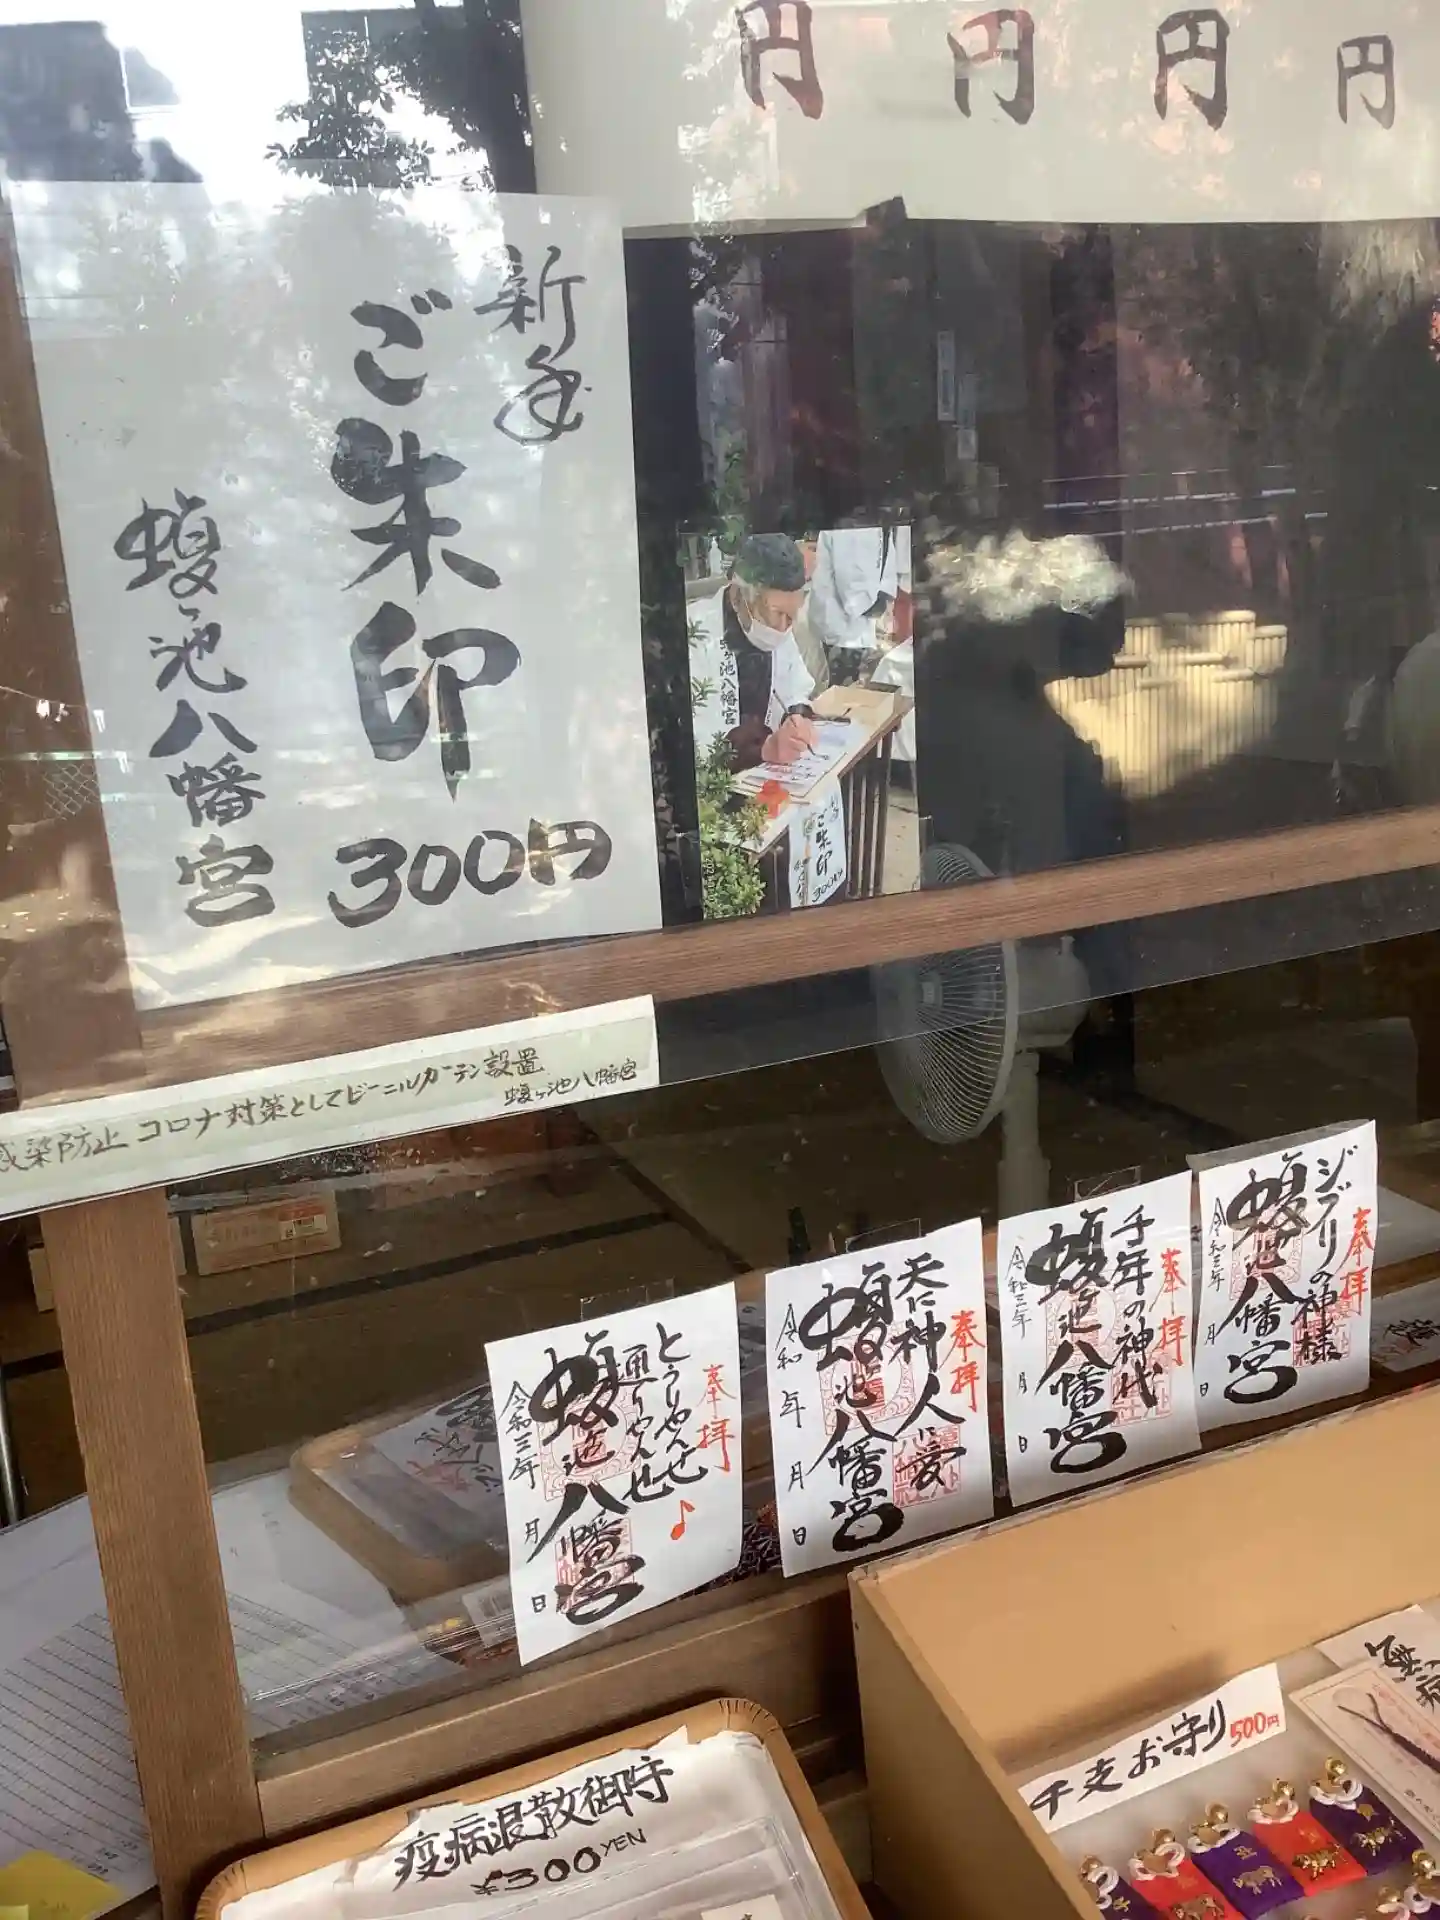 円 円 円 円
新年
ご朱印
300円
蝮ヶ池八幡宮
ヶ池八幡宮
ご朱印
300円
感染防止 コロナ対策としてビニールカーテン設置
蝮ヶ池八幡宮
奉拝
とうりゃんせ
通りゃんせ
♪
蝮ヶ池八幡宮
令和三年 月 日
奉拝
天に神 人に愛
蝮ヶ池八幡宮
令和 年 月 日
奉拝
千年の神代
蝮ヶ池八幡宮
令和三年 月 日
奉拝
ジブリの神様
蝮ヶ池八幡宮
令和三年 月 日
疫病退散御守
¥300 YEN
干支お守り 500円
無病